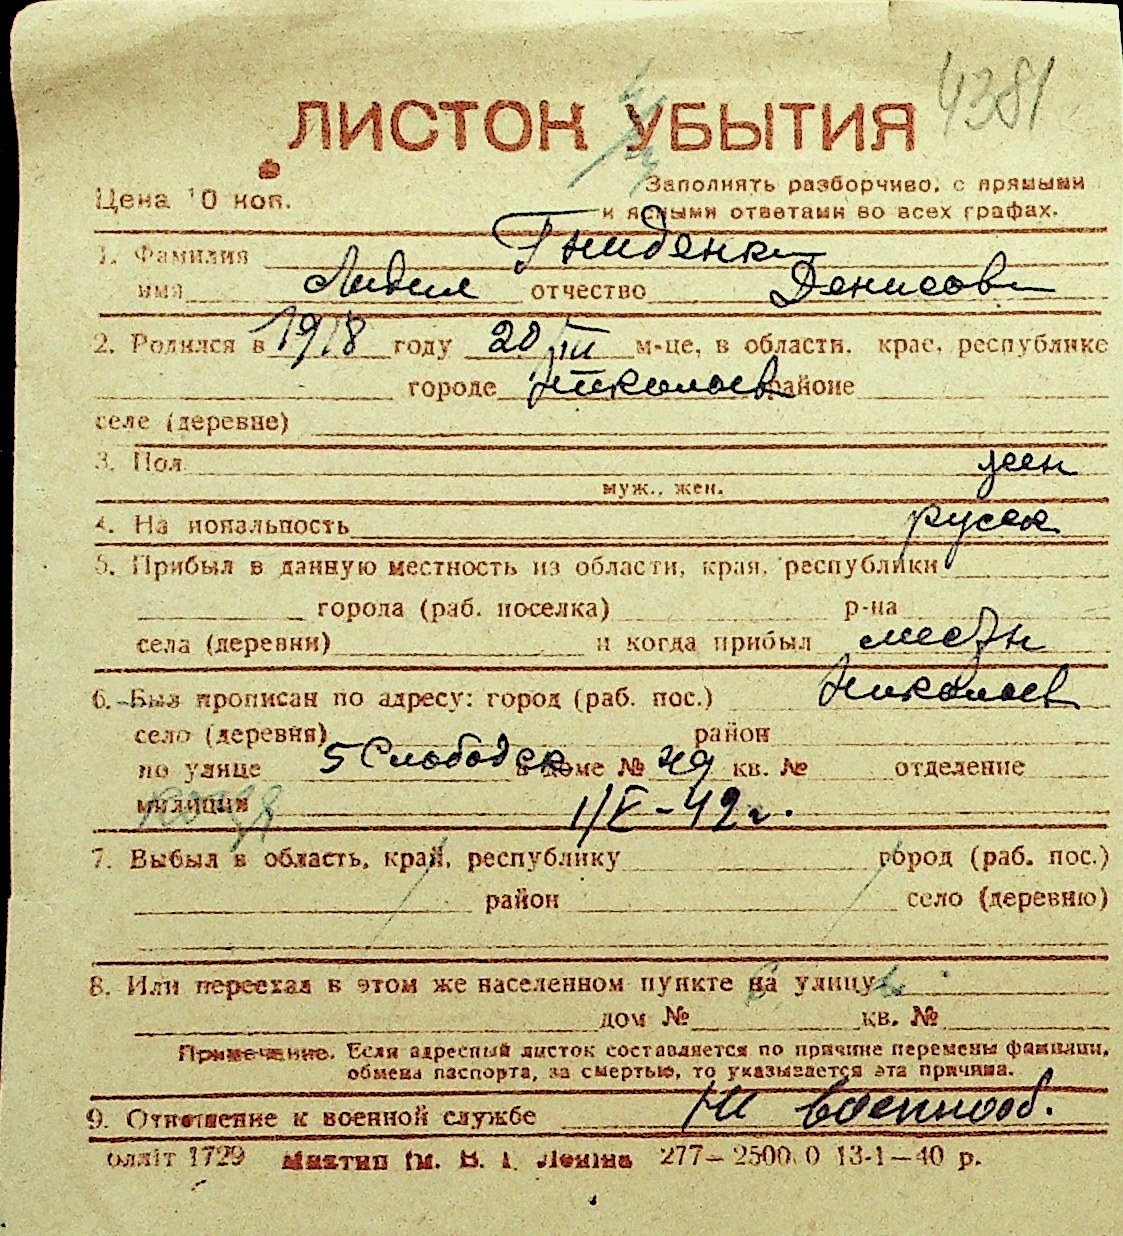 4381
ЛИСТОК УБЫТИЯ
Цена 10 коп.
Заполнять разборчиво, с прямыми
и ясными ответами во всех графах.
1. Фамилия Гниденко
имя Лидия отчество Денисов
2. Родился в 1918 году 20/III м-це, в области, крае, республике
городе Николаев районе
селе (деревне)
3. Пол жен
муж., жен.
4. Национальность русск
5. Прибыл в данную местность из области, края, республики
города (раб. поселка) р-на
села (деревни) и когда прибыл местн
6. Был прописан по адресу: город (раб. пос.) Николаев
село (деревня) район
по улице 5 Слободск в доме № 49 кв. № отделение
милиции 1/V-42 г.
7. Выбыл в область, край, республику город (раб. пос.)
район село (деревню)
8. Или переехал в этом же населенном пункте на улицу
дом № кв. №
Примечание. Если адресный листок составляется по причине перемены фамилии,
обмена паспорта, за смертью, то указывается эта причина.
9. Отношение к военной службе не военнооб.
оллiт 1729 iм. В. І. Ленiна 277— 13-1—40 р.